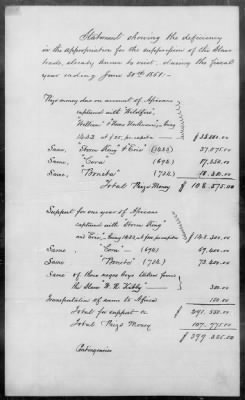 Statement showing the deficiency
in the appropriation for the suppression of the Slave
trade, already known to exist, during the fiscal
year ending June 30th 1861:-
Prize money due on account of Africans
captured with "Wildfire",
"William" & "Bogota", being
1432 at $25, per capita - $
Same, "Storm King" & "Erie" (1483) 37,075.00
Same, "Cora" (694) 17,350.00
Same, "Bonita"
Total Prize Money $
Support for one year of Africans
captured with Storm King
and Erie, being 1483, at $100 per capita $ 148,300.00
Same "Cora" - (694) 69,400.00
Same "Bonita"
Same of three negro boys taken from
the Slaver "W. R. Kibby" 300.00
Transportation of same to Africa 150.00
Total for support &c
Total Prize Money 107,775.00
$ 399,325.00
Contingencies